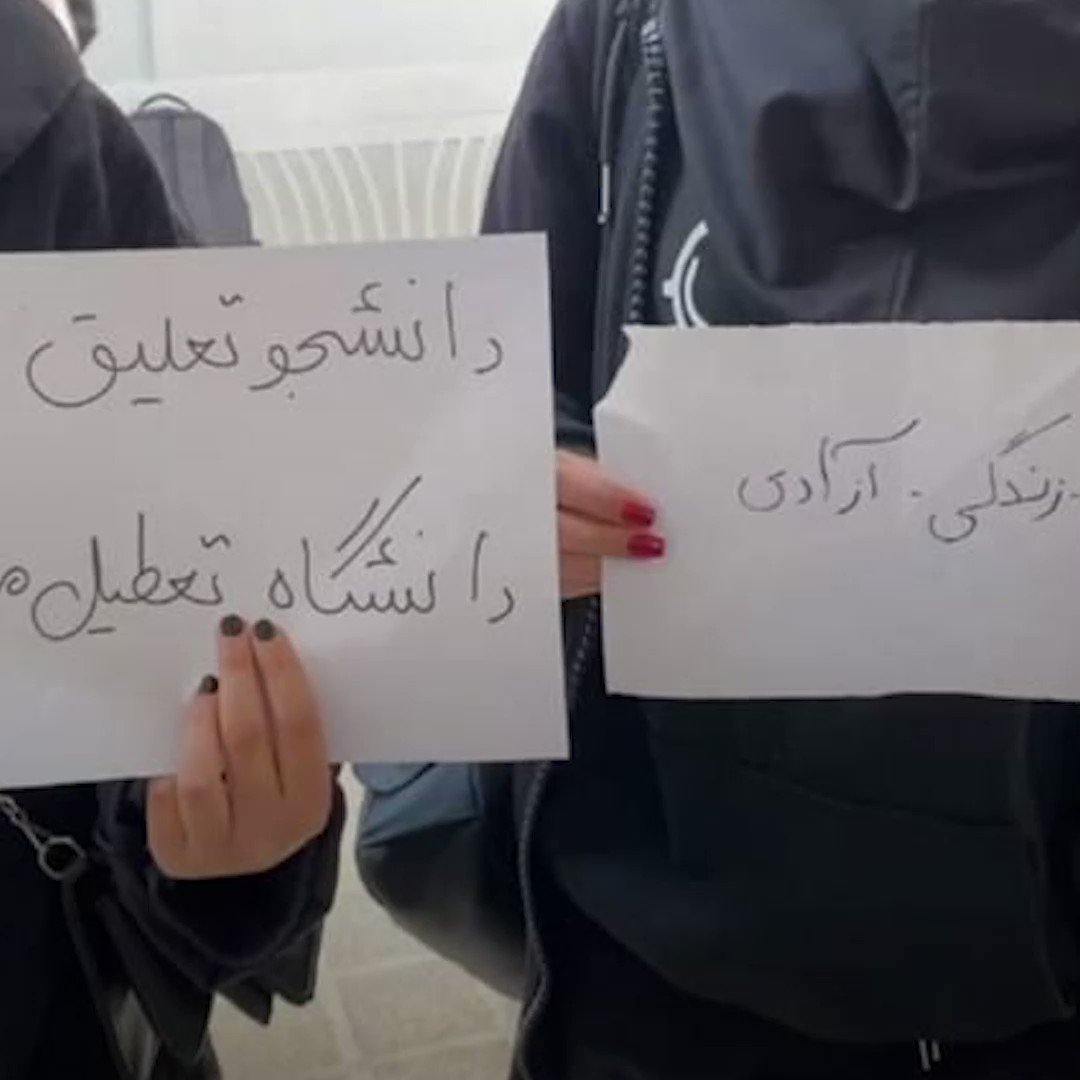 دانشجو تعلیق
دانشگاه تعطیله
زندگی - آزادی